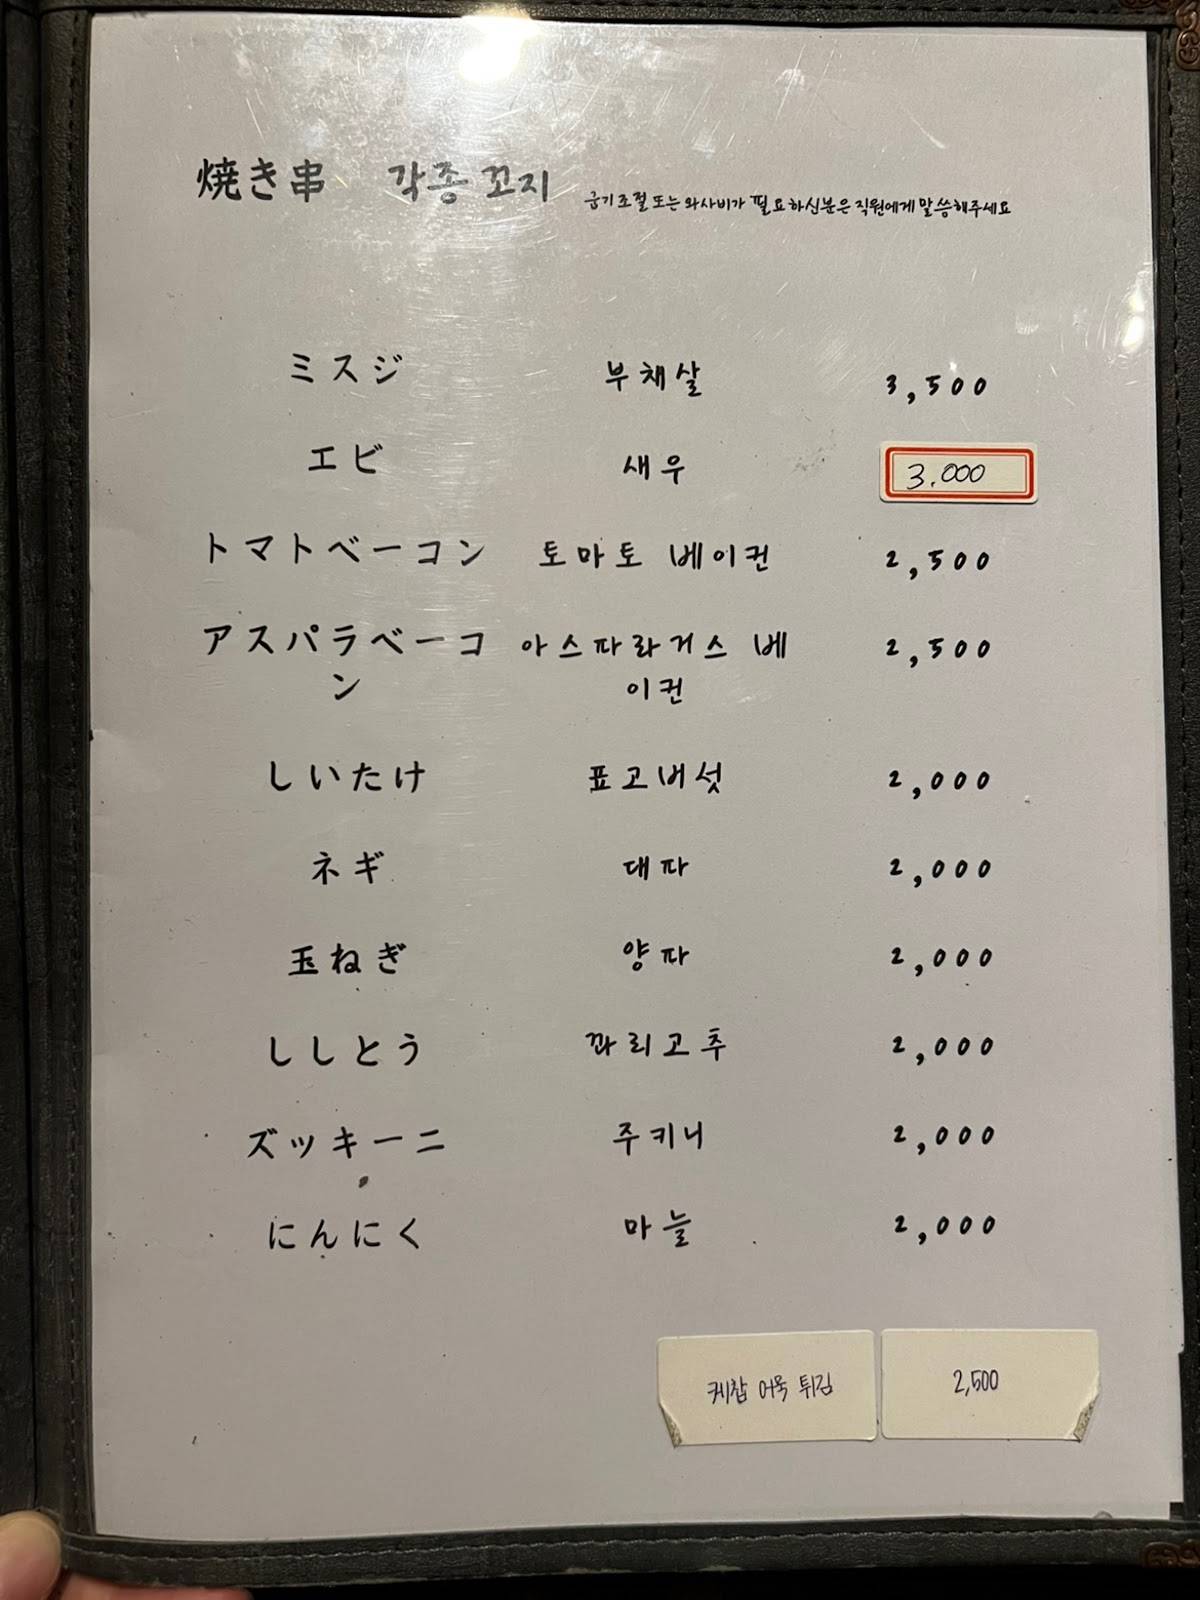 焼き串 각종 꼬지 굽기조절 또는 와사비가 필요하신분은 직원에게 말씀해주세요
ミスジ 부채살 3,500
エビ 새우 3.000
トマトベーコン 토마토 베이컨 2,500
アスパラベーコ 아스파라거스 베 2,500
ン 이컨
しいたけ 표고버섯 2,000
ネギ 대파 2,000
玉ねぎ 양파 2,000
ししとう 꽈리고추 2,000
ズッキーニ 주키니 2,000
にんにく 마늘 2,000
케찹 어묵 튀김 2,500